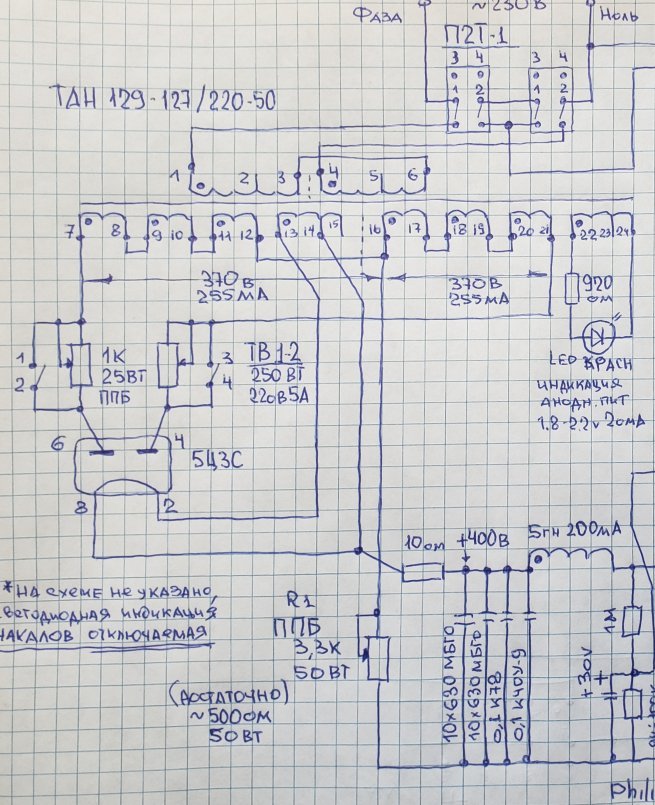 ~230В
ФАЗА
Ноль
П2Т-1
3 4
3 4
1 2
1 2
ТАН 129-127/220-50
1 2 3 4 5 6
7 8 9 10 11 12 13 14 15 16 17 18 19 20 21 22 23 24
370В
255МА
370В
255МА
920
ОМ
LED КРАСН
ИНДИКАЦИЯ
АНОДН. ПИТ
1.8-2.2v 20МА
1
2
1К
25ВТ
ППБ
3
4
ТВ1-2
250ВТ
220В5А
6
4
5Ц3С
8
2
10ОМ
+400В
5ГН 200МА
*НА СХЕМЕ НЕ УКАЗАНО,
ВЕТОДИОДНАЯ ИНДИКАЦИЯ
НАКАЛОВ ОТКЛЮЧАЕМАЯ
R1
ППБ
3,3К
50ВТ
(ДОСТАТОЧНО)
~500ОМ
50ВТ
10х630 МБГО
10х630 МБГО
0,1 К78
0,1 К40У-9
1М
+30V
+
Phili